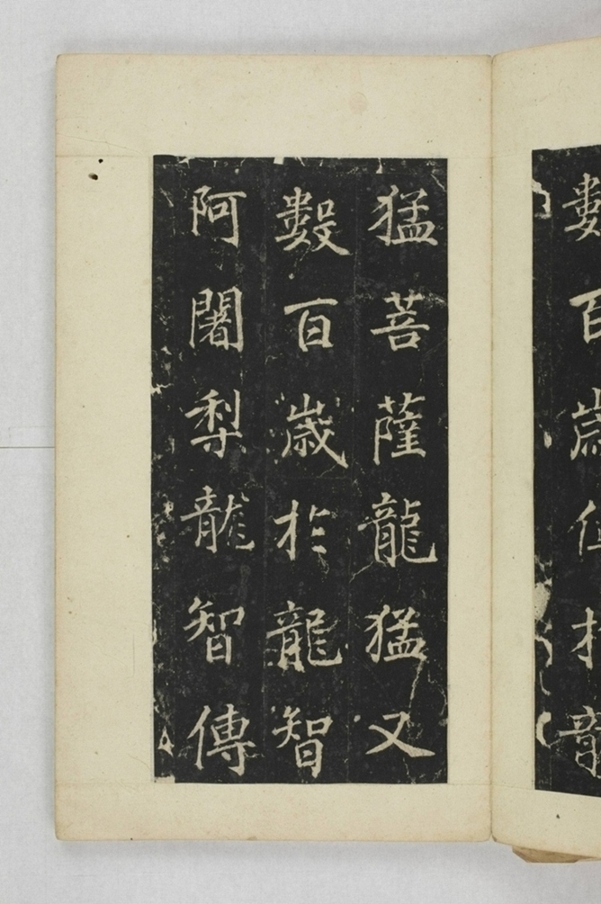 猛菩薩龍猛又
數百歲於龍智
阿闍梨龍智傳
數百歲
龍